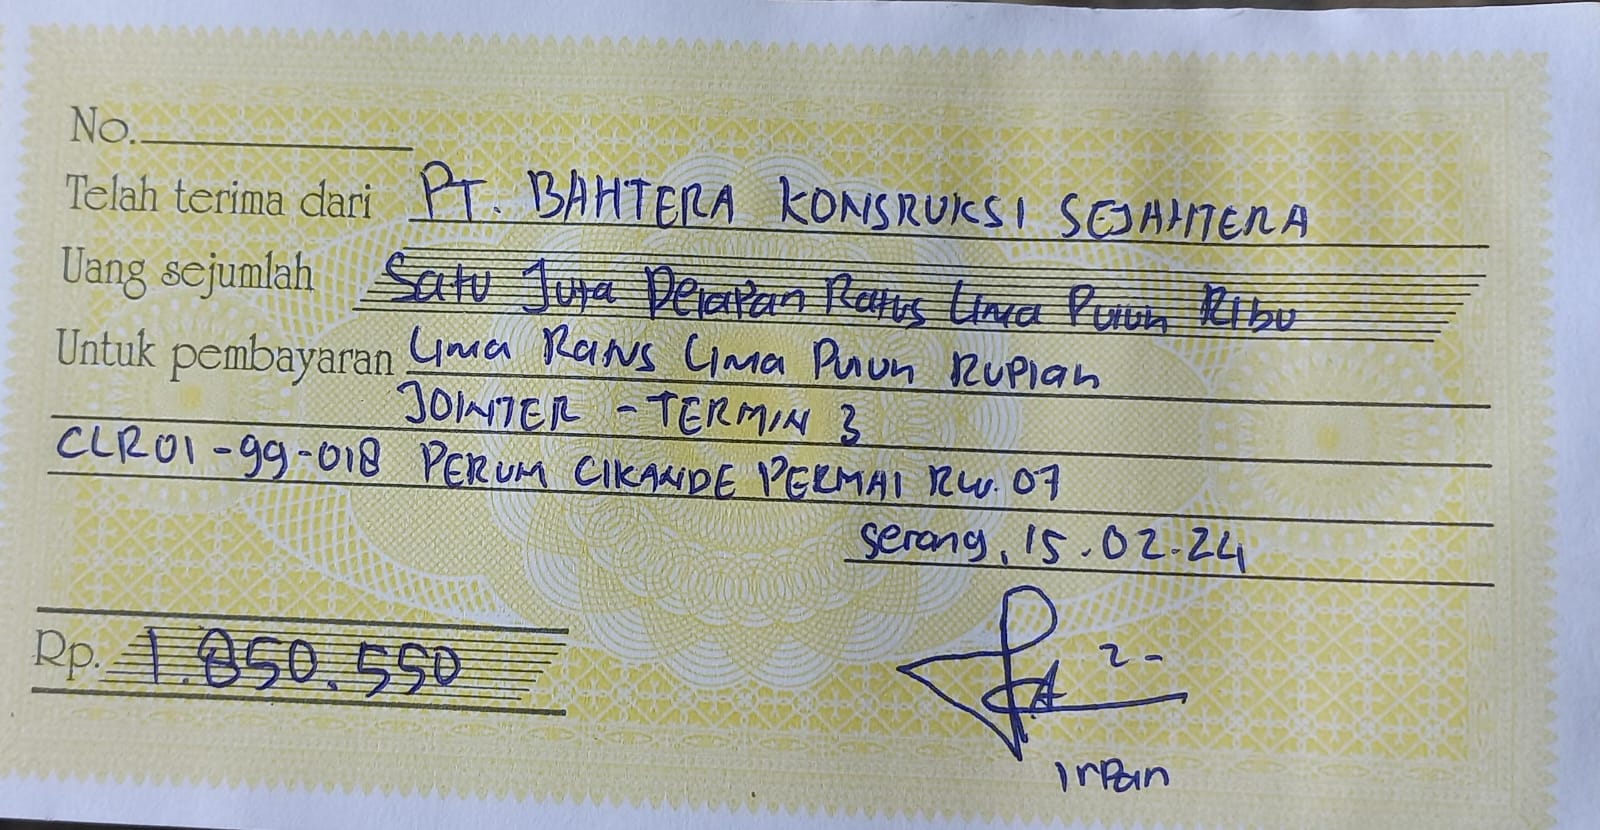 No.
Telah terima dari PT. BAHTERA KONSRUKSI SEJAHTERA
Uang sejumlah Satu Juta Delapan Ratus Lima Puluh Ribu
Untuk pembayaran Lima Ratus Lima Puluh Rupiah
JOINTER - TERMIN 3
CLR01-99-018 PERUM CIKANDE PERMAI RW. 07
Serang, 15.02-24
Rp. 1.850.550
Irpan